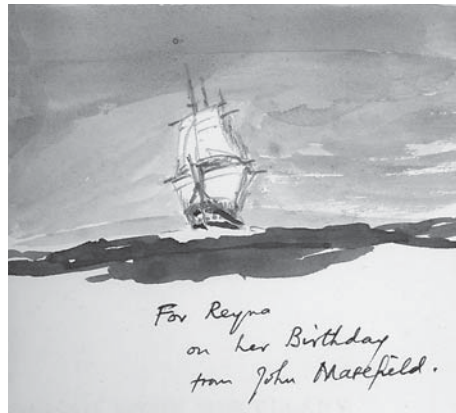 For Reyna
on her Birthday
from John Masefield.